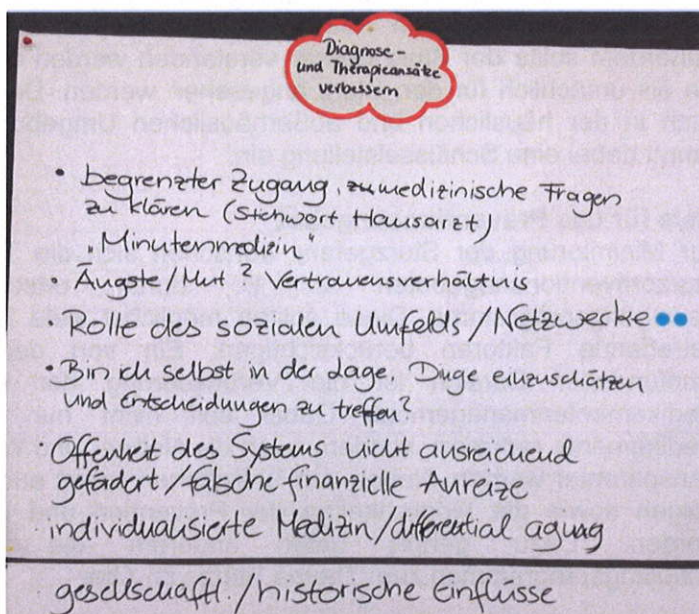 Diagnose-
und Therapieansätze
verbessern
• begrenzter Zugang, zu medizinische Fragen
zu klären (Stichwort Hausarzt,
"Minutenmedizin
• Ängste/Mut? Vertrauensverhältnis
• Rolle des sozialen Umfelds/Netzwerke
• Bin ich selbst in der Lage, Dinge einzuschätzen
und Entscheidungen zu treffen?
Offenheit des Systems nicht ausreichend
gefördert/falsche finanzielle Anreize
individualisierte Medizin/differential agung
gesellschaftl./historische Einflüsse